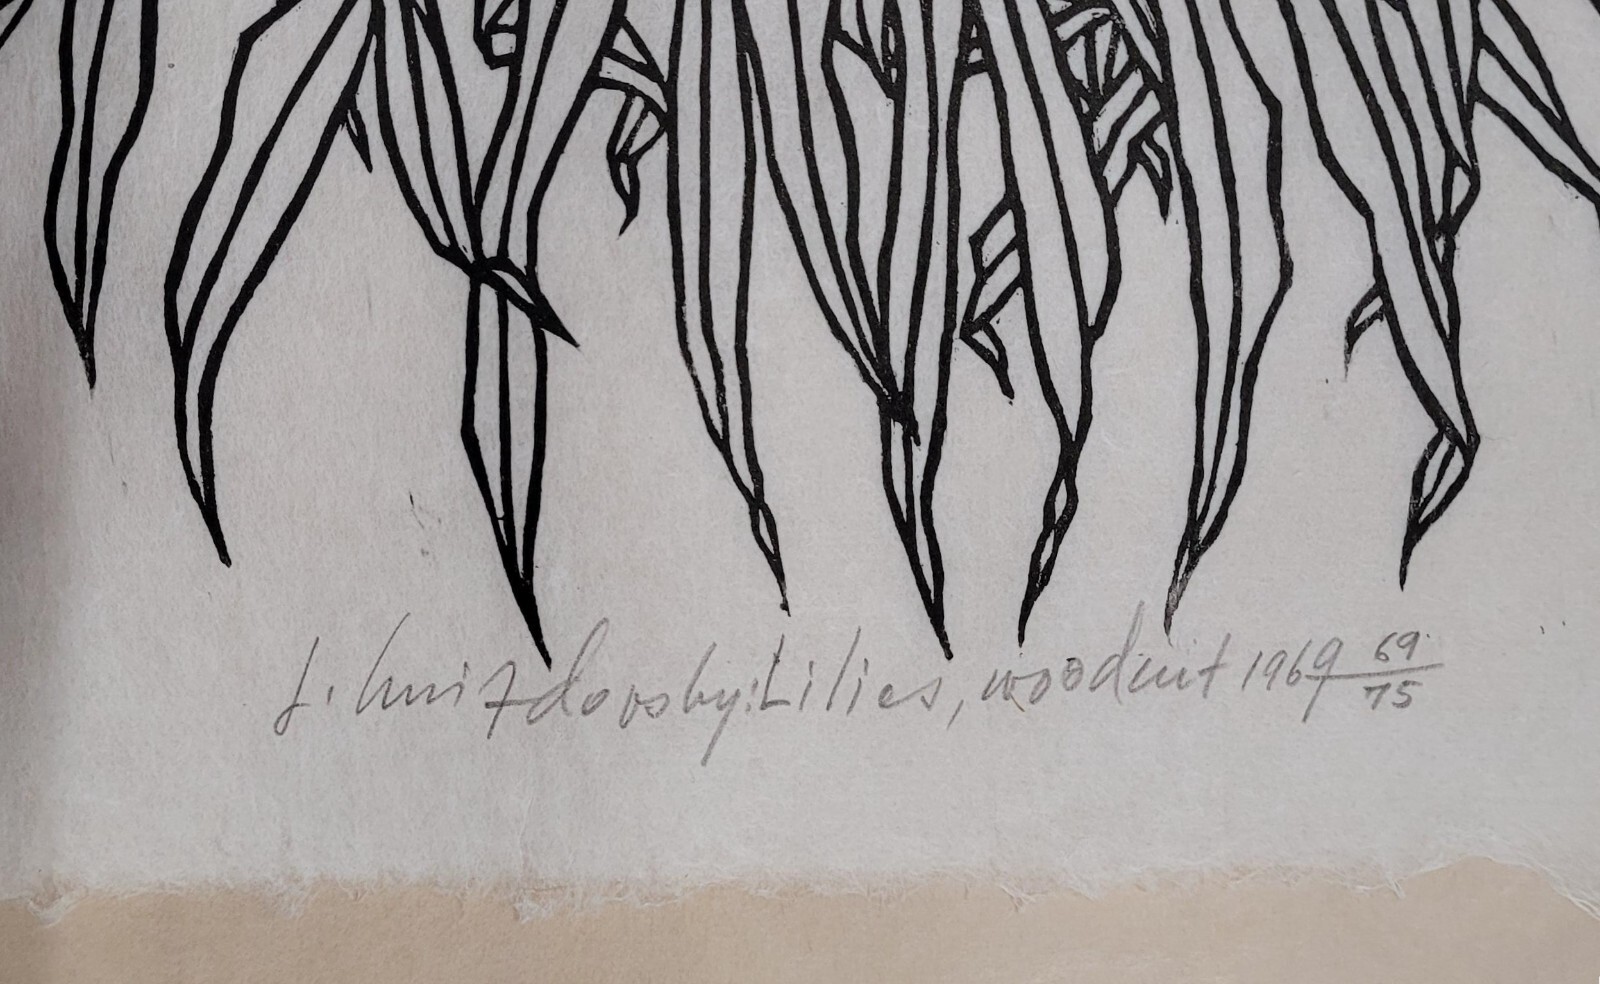 J. Hnizdovsky: Lilies, woodcut 1969 69/75